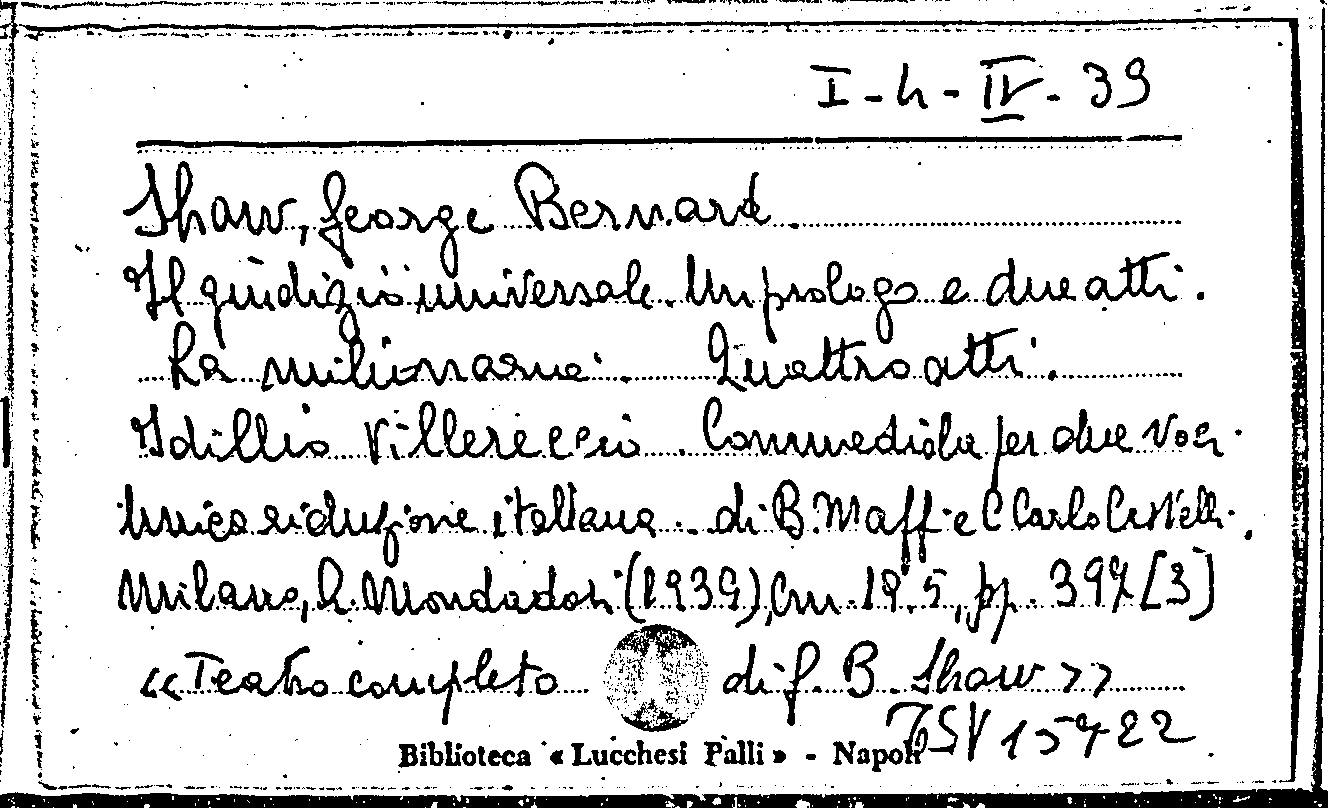 I-4-IV-39
Shaw, George Bernard.
Il giudizio universale. Un prologo e due atti.
La milionaria. Quattro atti.
Idillio Villereccio. Commediola per due voci.
Unica riduzione italiana di B. Maffi e C Carlo Castelli.
Milano, A. Mondadori (1939), Cm. 19.5, pp. 397 [3]
«Teatro completo di G. B. Shaw»
15722
Biblioteca « Lucchesi Palli » - Napoli